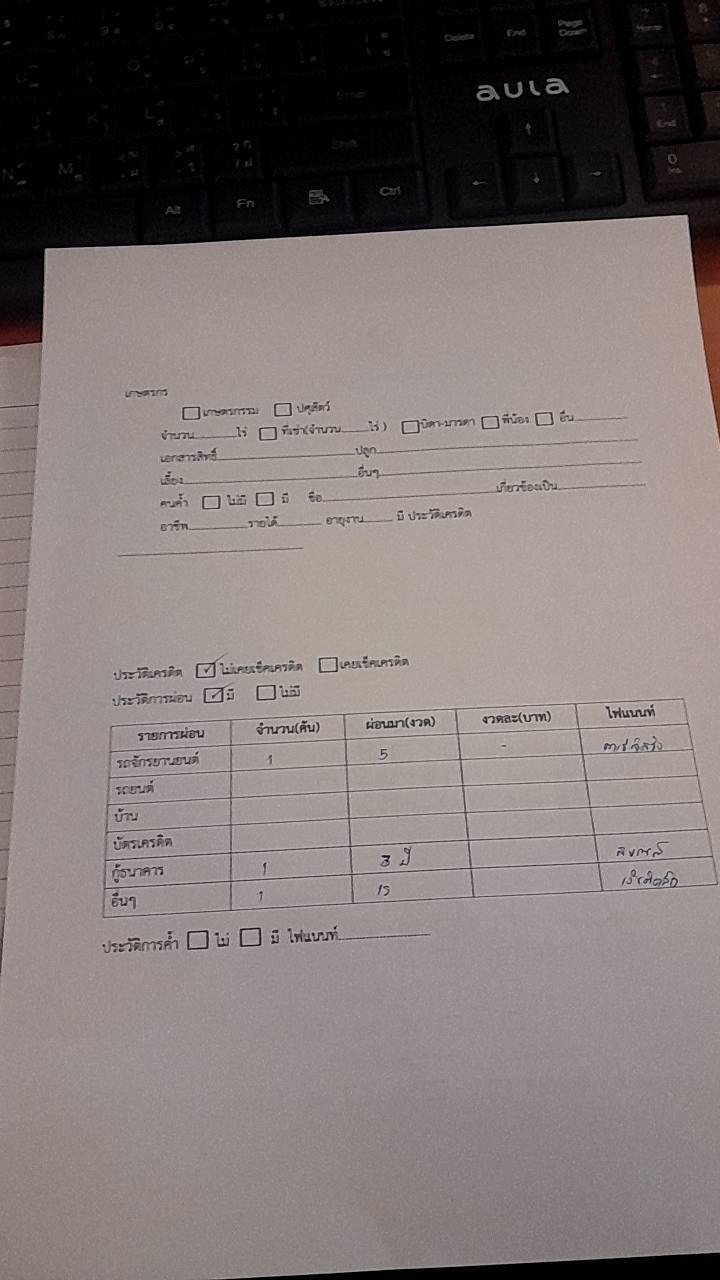 Delete End Page Down Home
aula
Enter End
Shift
N M 0 Ins
Alt Fn Ctrl
เกษตรกร
เกษตรกรรม ปศุสัตว์
จำนวน ไร่ ที่เช่า(จำนวน ไร่ ) บิดา-มารดา พี่น้อง อื่น
เอกสารสิทธิ์ ปลูก
เลี้ยง อื่นๆ
คนค้ำ ไม่มี มี ชื่อ เกี่ยวข้องเป็น
อาชีพ รายได้ อายุงาน มี ประวัติเครดิต
ประวัติเครดิต ✓ ไม่เคยเช็คเครดิต เคยเช็คเครดิต
ประวัติการผ่อน ✓ มี ไม่มี
รายการผ่อน จำนวน(คัน) ผ่อนมา(งวด) งวดละ(บาท) ไฟแนนท์
รถจักรยานยนต์ 1 5 -
รถยนต์
บ้าน
บัตรเครดิต
กู้ธนาคาร 1 3 ปี
อื่นๆ 1 15
ประวัติการค้ำ ไม่ มี ไฟแนนท์